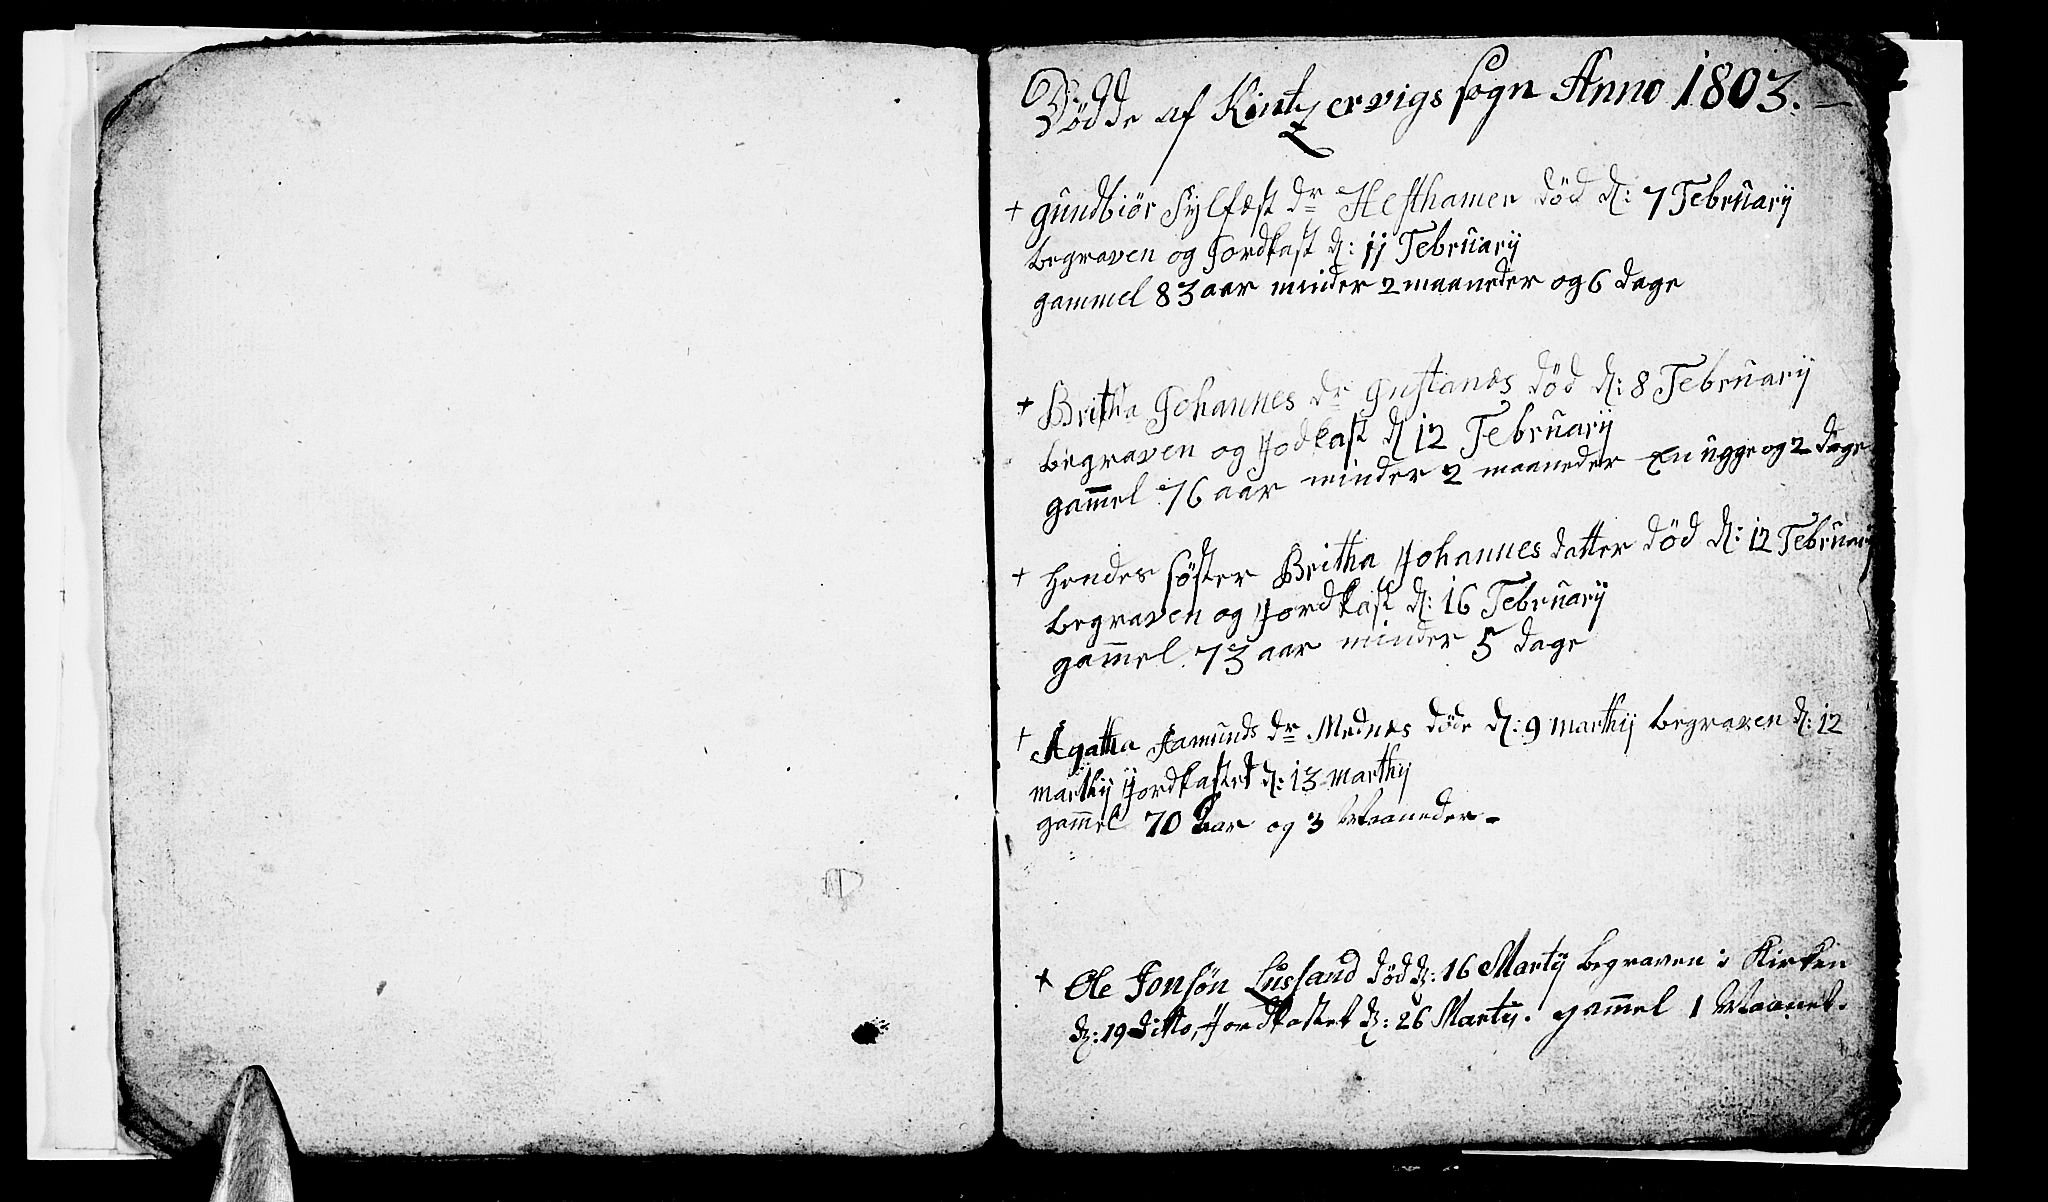 Dödde af Kintzervigs sogn Anno 1803. –
+ gundbiör Sylfæst dr Hesthamer död d: 7 Februarij
begraven og Jordkast d: 11 Februarij
gammel 83 aar minder 2 maaneder og 6 dage
+ Britha Johannes dr Gustanæs död d: 8 Februarij
begraven og Jodkast d 12 Februarij
gam̄el 76 aar minder 2 maaneder En ugge og 2 dage
+ hendes söster Britha Johannes datter död d: 12 Februarij
begraven og Jordkast d: 16 Februarij
gam̄el 73 aar minder 5 dage
+ Agatha Aamunds dr Mednæs döde d: 9 marthij begraven d: 12
marthij Jordkastet d: 13 marthij
gam̄el 70 aar og 3 Maaneder -
+ Ole Jonsön Lussand död d: 16 Martij begraven i Kirken
d: 19 Ditto, Jordkastet d: 26 Martij. gam̄el 1 Maanet.